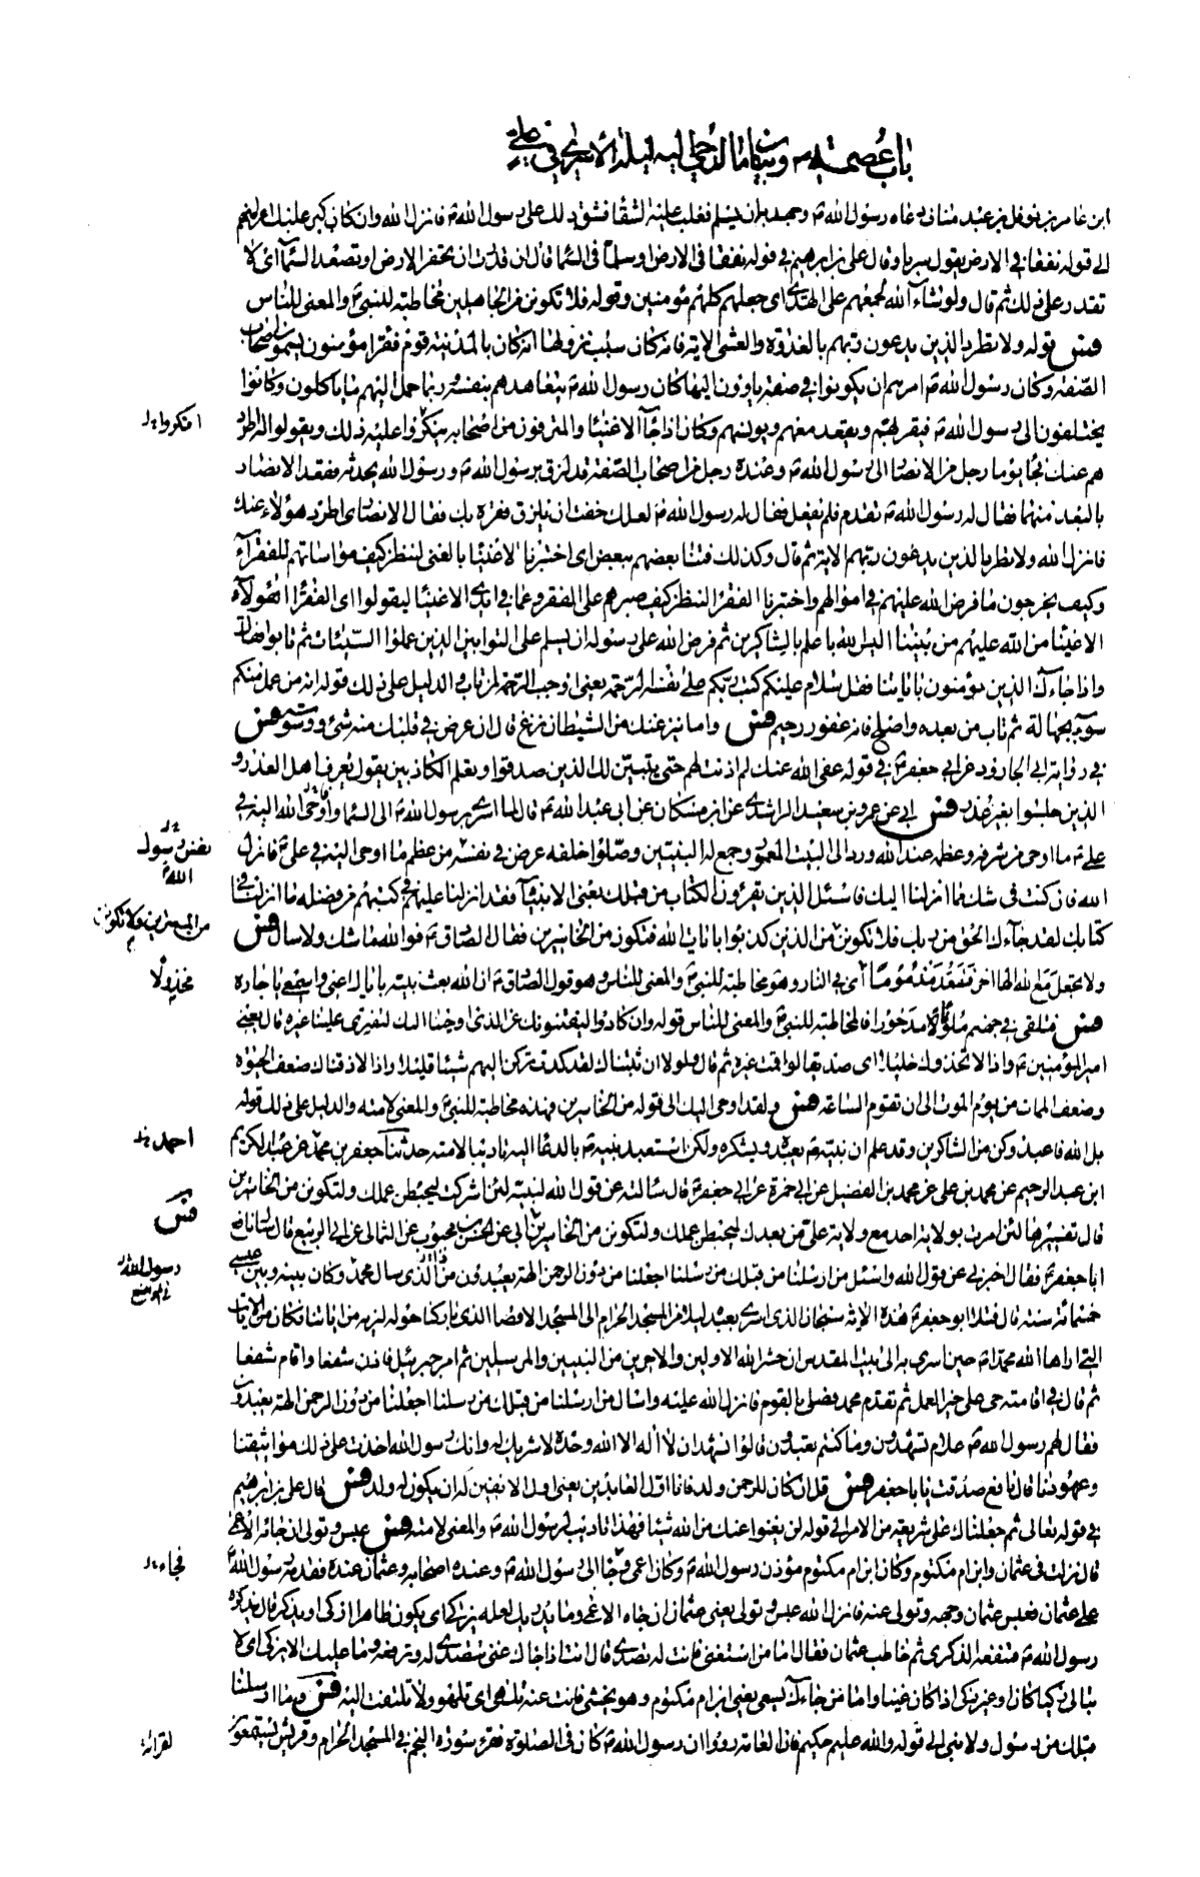 باب عصمته وبيان ما اوحي اليه ليلة الاسرى في علي
ابن عامر بن نوفل بن عبد مناف دعاه رسول الله ص وجهد به ان يسلم فغلب عليه الشقا فشق ذلك على رسول الله ص فانزل الله وان كان كبر عليك اعراضهم
الى قوله نفقا في الارض يقول سربا وقال علي بن ابرهيم في قوله نفقا في الارض او سلما في السماء قال ان قدرت ان تحفر الارض او تصعد السماء اي لا
تقدر على ذلك ثم قال ولو شاء الله لجمعهم على الهدى اي جعلهم كلهم مؤمنين وقوله فلا تكونن من الجاهلين مخاطبة للنبي والمعنى للناس
فس قوله ولا تطرد الذين يدعون ربهم بالغدوة والعشي الاية فانه كان سبب نزولها انه كان بالمدينة قوم فقرا مؤمنون يسمون اصحاب
الصفة وكان رسول الله ص امرهم ان يكونوا في صفة ياوون اليها كان رسول الله ص يتعاهدهم بنفسه ربما حمل اليهم ما ياكلون وكانوا
يختلفون الى رسول الله ص فيقربهم ويقعد معهم ويونسهم وكان اذا جآء الاغنيا والمترفون من اصحابه ينكروا عليه ذلك ويقولوا له اطرد
انكروا
هم عنك فجا يوما رجل من الانصار الى رسول الله ص وعنده رجل من اصحاب الصفة قد لزق برسول الله ص ورسول الله يحدثه فقعد الانصاري
بالبعد منهما فقال له رسول الله ص تقدم فلم يفعل فقال له رسول الله ص لعلك خفت ان يلزق فقره بك فقال الانصاري اطرد هؤلاء عنك
فانزل الله ولا تطرد الذين يدعون ربهم الاية ثم قال وكذلك فتنا بعضهم ببعض اي اختبرنا الاغنيا بالغنى لننظر كيف مواساتهم للفقرآء
وكيف يخرجون ما فرض الله عليهم في اموالهم واختبرنا الفقرا لننظر كيف صبرهم على الفقر وعما في ايدي الاغنيا ليقولوا اى الفقرا اهؤلاء
الاغنيا من الله عليهم من بيننا اليس الله باعلم بالشاكرين ثم فرض الله على رسوله ان يسلم على التوابين الذين عملوا السيئات ثم تابوا فقال
واذا جاءك الذين يؤمنون باياتنا فقل سلام عليكم كتب ربكم على نفسه الرحمة يعني اوجب الرحمة لمن تاب والدليل على ذلك قوله انه من عمل منكم
سوء بجهالة ثم تاب من بعده واصلح فانه غفور رحيم فس واما ينزغنك من الشيطان نزغ قال ان عرض في قلبك منه شئ ووسوسة فس
في رواية ابي الجارود عن ابي جعفر في قوله عفى الله عنك لم اذنت لهم حتى يتبين لك الذين صدقوا وتعلم الكاذبين يقول تعرف اهل العذر و
الذين جلسوا بغير عذر فس ابي عن عمرو بن سعيد الراشدي عن ابن مسكان عن ابي عبد الله ص قال لما اسري برسول الله ص الى السماء واوحى الله اليه في
علي ما اوحى من شرفه وعظمه عند الله ورد الى البيت المعمور وجمع له النبيين وصلوا خلفه عرض في نفسه من عظم ما اوحى اليه في علي فانزل
نفس رسول الله
الله فان كنت في شك مما انزلنا اليك فاسئل الذين يقرؤن الكتاب من قبلك يعني الانبيآء فقد انزلنا عليهم في كتبهم من فضله ما انزلنا في
كتابك لقد جآءك الحق من ربك فلا تكونن من الذين كذبوا بايات الله فتكون من الخاسرين فقال الصادق فوالله ما شك ولا سال فس
من الممترين ولا تكونن
ولا تجعل مع الله الها اخر فتقعد مذموما اي في النار وهو مخاطبة للنبي والمعنى للناس وهو قول الصادق ان الله بعث نبيه باياك اعني واسمعي يا جاره
مخذولا
فس فتلقى في جهنم ملوما مدحورا فالمخاطبة للنبي والمعنى للناس قوله وان كادوا ليفتنونك عن الذي اوحينا اليك لتفترى علينا غيره قال يعني
امير المؤمنين واذا لاتخذوك خليلا اي صديقا لو اقمت غيره ثم قال ولولا ان ثبتناك لقد كدت تركن اليهم شيئا قليلا واذا لاذقناك ضعف الحيوة
وضعف الممات من يوم الموت الى ان تقوم الساعة فس ولقد اوحي اليك الى قوله من الخاسرين فهذه مخاطبة للنبي والمعنى لامته والدليل على ذلك قوله
بل الله فاعبد وكن من الشاكرين وقد علم ان نبيه يعبده ويشكره ولكن استعبد نبيه بالدعا اليه تاديبا لامته حدثنا جعفر بن محمد عن عبد الكريم
احمد
ابن عبد الرحيم عن محمد بن علي عن محمد بن الفضيل عن ابي حمزة عن ابي جعفر قال سالته عن قول الله لنبيه لئن اشركت ليحبطن عملك ولتكونن من الخاسرين
قال تفسيرها لئن امرت بولاية احد مع ولاية علي من بعدك ليحبطن عملك ولتكونن من الخاسرين ابي عن الحسن بن محبوب عن الثمالي عن ابي الربيع قال سال نافع
فس
ابا جعفر فقال اخبرني عن قول الله واسئل من ارسلنا من قبلك من رسلنا اجعلنا من دون الرحمن الهة يعبدون من الذي سال محمد وكان بينه وبين عيسى
خمسمائة سنة قال فتلا ابو جعفر هذه الاية سبحان الذي اسرى بعبده ليلا من المسجد الحرام الى المسجد الاقصا الذي باركنا حوله لنريه من اياتنا فكان من الايات
التي اراها الله محمدا حين اسري به الى بيت المقدس ان حشر الله الاولين والاخرين من النبيين والمرسلين ثم امر جبرئيل فاذن شفعا واقام شفعا
ثم قال في اقامته حي على خير العمل ثم تقدم محمد فصلى بالقوم فانزل الله عليه واسال من ارسلنا من قبلك من رسلنا اجعلنا من دون الرحمن الهة يعبدون
فقال لهم رسول الله ص علام تشهدون وما كنتم تعبدون قالوا نشهد ان لا اله الا الله وحده لا شريك له وانك رسول الله اخذت على ذلك مواثيقنا
وعهودنا قال نافع صدقت يا با جعفر فس قل ان كان للرحمن ولد فانا اول العابدين يعني اول الانفين له ان يكون له ولد فس قال علي بن ابرهيم
في قوله تعالى ثم جعلناك على شريعة من الامر الى قوله لن يغنوا عنك من الله شيئا فهذا تاديب لرسول الله ص والمعنى لامته فس عبس وتولى ان جاءه الاعمى
قال نزلت في عثمان وابن ام مكتوم وكان ابن ام مكتوم مؤذن رسول الله ص وكان اعمى وجا الى رسول الله ص وعنده اصحابه وعثمان عنده فقدمه رسول الله
فجاء
على عثمان فعبس عثمان وجهه وتولى عنه فانزل الله عبس وتولى يعني عثمان ان جاءه الاعمى وما يدريك لعله يزكى اي يكون طاهرا ازكى او يذكر قال يذكره
رسول الله ص فتنفعه الذكرى ثم خاطب عثمان فقال اما من استغنى فانت له تصدى قال انت اذا جاءك غني تتصدى له وترفعه وما عليك الا يزكى اي لا
تبالي زكيا كان او غير زكي اذا كان غنيا واما من جاءك يسعى يعني ابن ام مكتوم وهو يخشى فانت عنه تلهى اي تلهو ولا تلتفت اليه فس وما ارسلنا
قبلك من رسول ولا نبي الى قوله والله عليم حكيم فان العامة رووا ان رسول الله ص كان في الصلوة فقرء سورة النجم في المسجد الحرام وقريش يستمعون
لقرائته